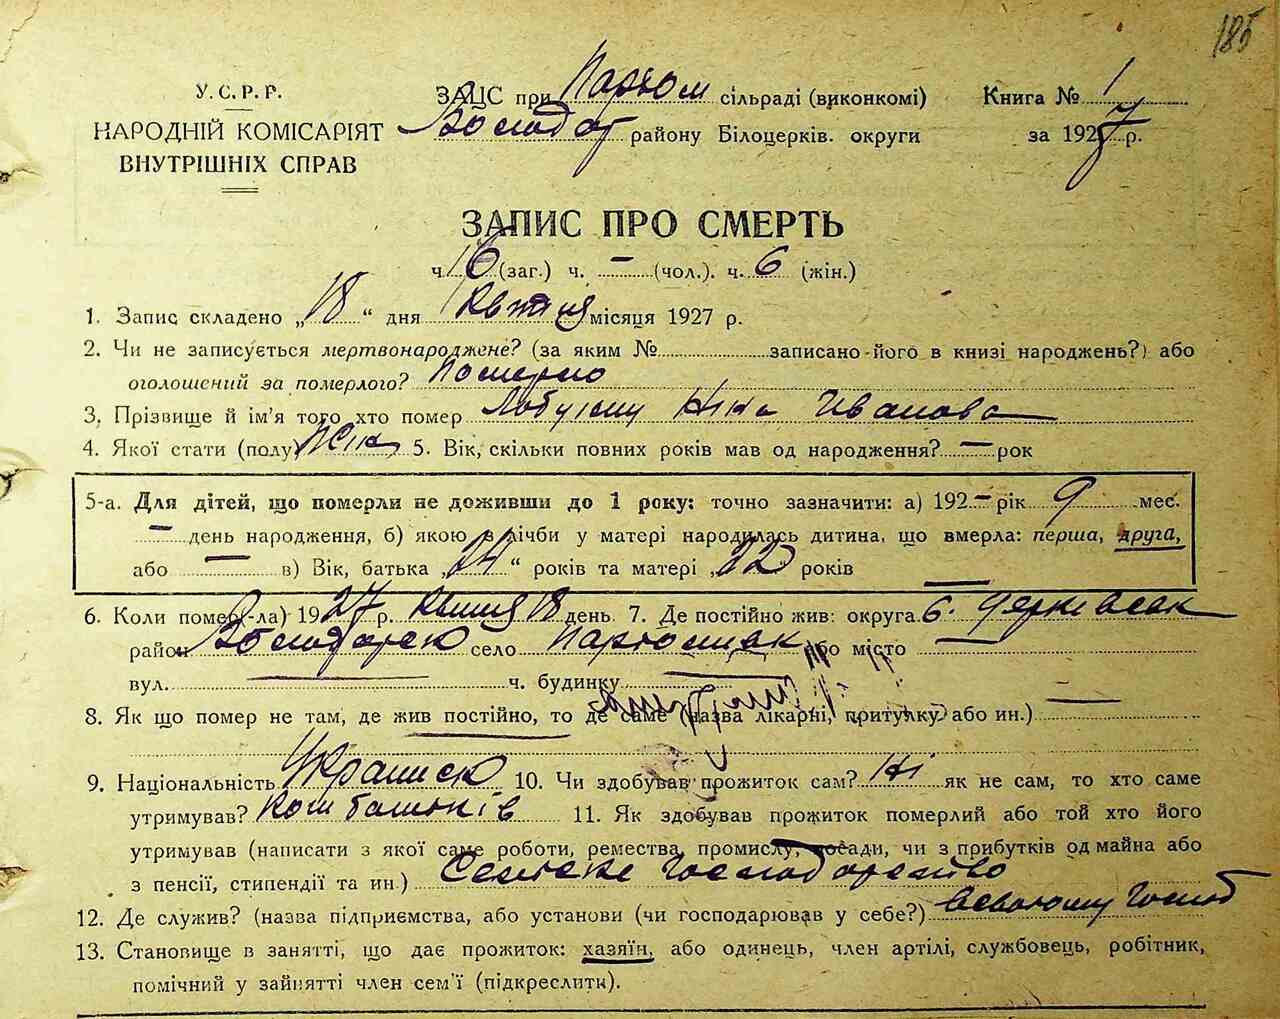 185
У.С.Р.Р.
НАРОДНІЙ КОМІСАРІЯТ
ВНУТРІШНІХ СПРАВ
ЗАЦС при Пархом сільраді (виконкомі) Книга № 1
Володар району Білоцерків. округи за 1927 р.
ЗАПИС ПРО СМЕРТЬ
ч. 16 (заг.) ч. – (чол.). ч. 6 (жін.)
1. Запис складено „18“ дня Квітня місяця 1927 р.
2. Чи не записується мертвонароджене? (за яким № записано його в книзі народжень?) або
оголошений за померлого? Померло
3. Прізвище й ім'я того, хто помер Ніна Иванова
4. Якої стати (полу) Жін. 5. Вік, скільки повних років мав од народження? – рок
5-а. Для дітей, що померли не доживши до 1 року: точно зазначити: а) 192 – рік 9 мес.
– день народження, б) якою в лічби у матері народилась дитина, що вмерла: перша, друга,
або – в) Вік, батька „24“ років та матері „22 років
6. Коли помер (-ла) 1927 р. Квітня 18 день. 7. Де постійно жив: округа Б. Церківськ
район Володарськ село або місто –
вул. – ч. будинку –
8. Як що помер не там, де жив постійно, то де саме (назва лікарні, притулку або ин.) –
9. Національність 10. Чи здобував прожиток сам? Ні як не сам, то хто саме
утримував? Кошт батьків 11. Як здобував прожиток померлий або той хто його
утримував (написати з якої саме роботи, ремества, промислу, посади, чи з прибутків од майна або
з пенсії, стипендії та ин.) Сельське Господарство
12. Де служив? (назва підприємства, або установи (чи господарював у себе?) в своему Господ
13. Становище в занятті, що дає прожиток: хазяїн, або одинець, член артілі, службовець, робітник,
помічний у зайнятті член сем'ї (підкреслити).